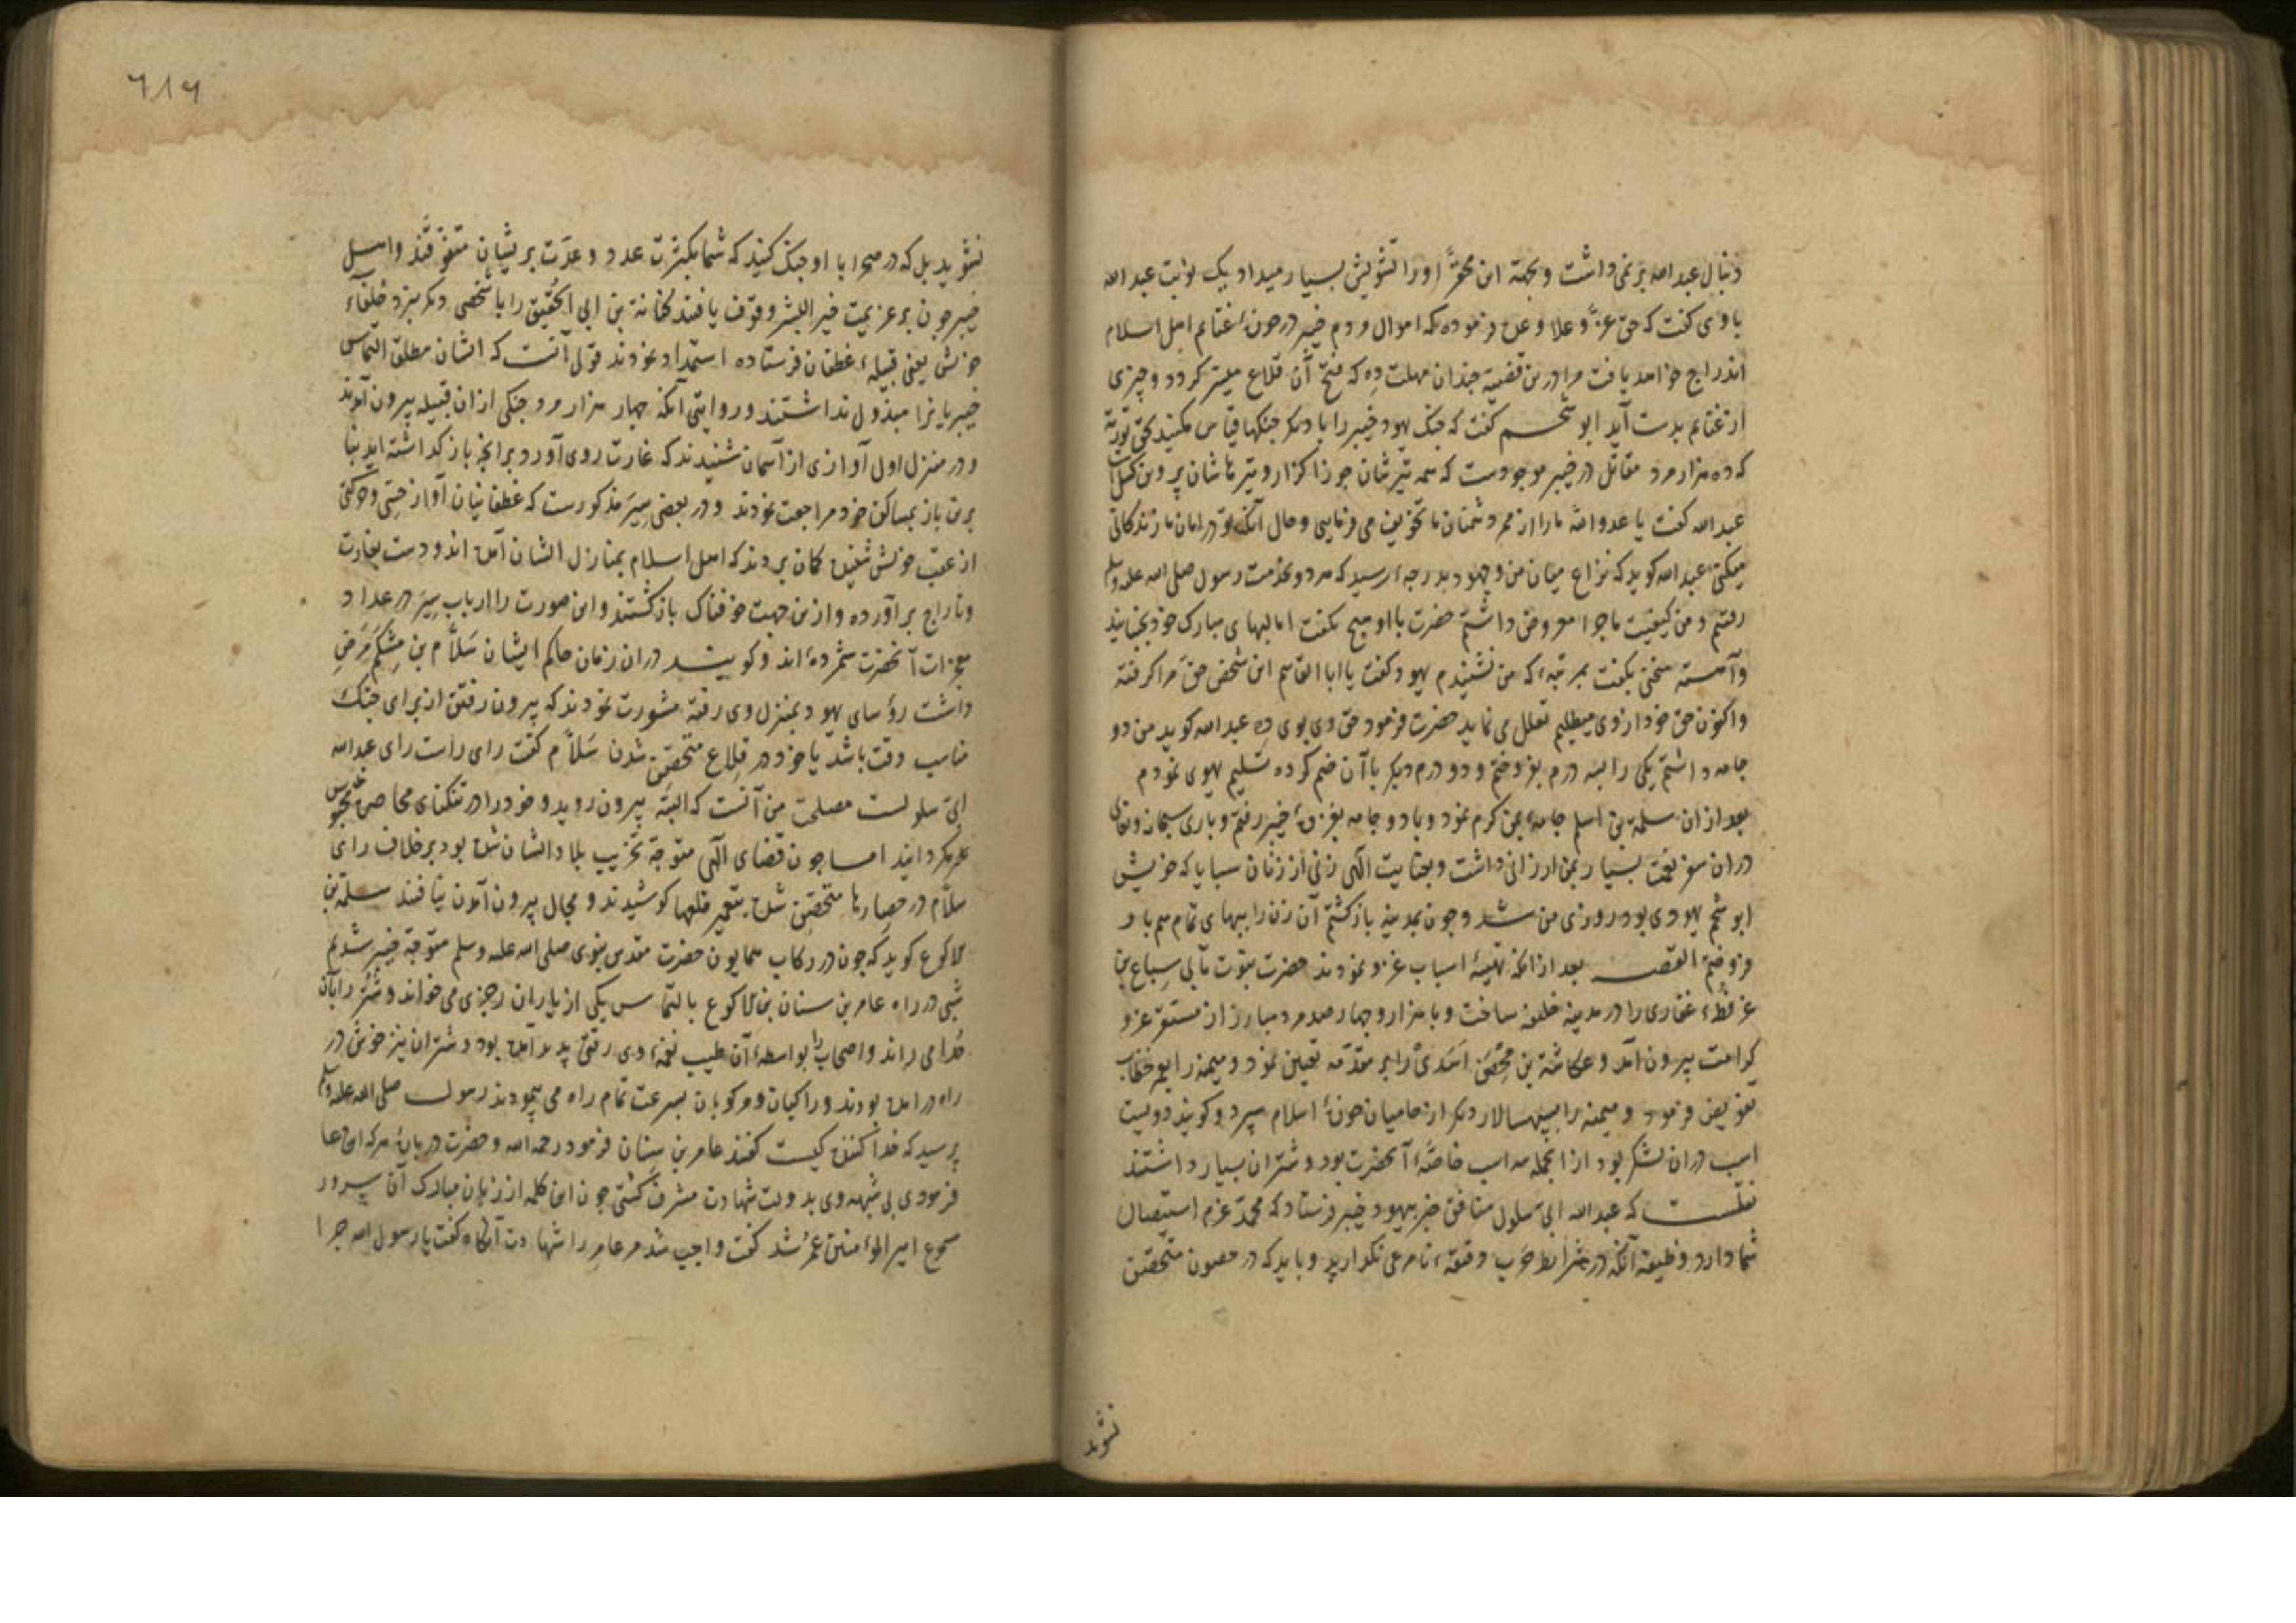 دنبال عبدالله بر نمی داشت و بجهة این محقر او را تشویش بسیار میداد یک نوبت عبدالله
با وی گفت که حق عز و علا وعده فرموده که اموال مردم خیبر در حوزهٔ غنایم اهل اسلام
اندراج خواهد یافت مرا درین قضیه چندان مهلت ده که فتح آن قلاع میسر گردد و چیزی
از غنایم بدست آید ابو شحم گفت که جنک یهود خیبر را با دیگر جنکها قیاس مکنید بحق توریة
که ده هزار مرد مقاتل در خیبر موجودست که همه تیرشان جوزا گزار
عبدالله گفت یا عدو الله ما را از مر دشمنان ما تخویف می فرمایی و حال آنکه تو در امان ما زندگانی
میکنی عبدالله گوید که نزاع میان من و جهود بدرجهٔ رسید که هر دو بخدمت رسول صلی الله علیه وسلم
رفتیم و من کیفیت ماجرا معروض داشتم حضرت با او هیچ نکفت اما لبهای مبارک خود بجنبانید
و آهسته سخنی بکفت بمرتبهٔ که من نشنیدم یهود کفت یا ابا القاسم این شخص حق مرا گرفته
و اکنون حق خود از وی میطلبم تعلل می نماید حضرت فرمود حق وی بوی ده عبدالله گوید من دو
جامه داشتم یکی را بسه درم بفروختم و دو درم دیگر با آن ضم کرده تسلیم یهودی نمودم
بعد از ان سلمة بن اسلم جامهٔ بمن کرم نمود و با دو جامه بغزوهٔ خیبر رفتم و باری سبحانه وتعالی
دران سفر نعمت بسیار بمن ارزانی داشت و بعنایت الهی زنی از زنان سبایا که خویش
ابو شحم یهودی بود روزی من شد و چون بمدینه بازگشتم آن زن را ببهای تمام هم باو
فروختم القصه بعد از انکه تهیهٔ اسباب غزو نمودند حضرت نبوت مآبی سباع بن
عرفطهٔ غفاری را در مدینه خلیفه ساخت و با هزار و چهار صد مرد مبارز از مستقر عز و
کرامت بیرون آمد و عکاشة بن محصن اسدی را بر مقدمه تعیین نمود و میمنه را بعمر خطاب
تفویض فرمود و میمنه را بسپهسالار دیگر از حامیان حوزهٔ اسلام سپرد و گویند دویست
اسب دران لشکر بود از انجمله سه اسب خاصهٔ آنحضرت بود و شتران بسیار داشتند
نقلست که عبدالله ابی سلول منافق خبر بیهود خیبر فرستاد که محمد عزم استیصال
شما دارد وظیفه آنکه در شرایط حرب دقیقهٔ نامرعی نگذارید و باید که در حصون متحصن
نشوید
٦١٩
نشوید بل که در صحرا با او جنک کنید که شما بکثرت عدد و عدت بریشان متفوقند و اهل
خیبر چون بر عزیمت خیر البشر وقوف یافتند کنانة بن ابی الحقیق را با شخصی دیگر بنزد حلفاء
خویش یعنی قبیلهٔ غطفان فرستاده استمداد نمودند قولی آنست که ایشان مطلق التماس
خیبریانرا مبذول نداشتند و روایتی آنکه چهار هزار مرد جنکی ازان قبیله بیرون آمدند
و در منزل اول آوازی از آسمان شنیدند که غارت روی آورد بر انچه بازگذاشته اید بنا
برین باز بمساکن خود مراجعت نمودند و در بعضی سیر مذکورست که غطفانیان آواز حسی و حرکتی
از عقب خویش شنیده گمان بردند که اهل اسلام بمنازل ایشان آمده اند و دست بغارت
و تاراج برآورده و ازین جهت خوفناک بازگشتند و این صورت را ارباب سیر در عداد
معجزات آنحضرت شمرده اند و گویند دران زمان حاکم ایشان سلام بن مشکم مرض
داشت رؤسای یهود بمنزل وی رفته مشورت نمودند که بیرون رفتن از برای جنک
مناسب وقت باشد یا خود در قلاع متحصن شدن سلام کفت رای راست رای عبدالله
ابی سلول است مصلحت من آنست که البته بیرون روید و خود را در تنکنای محاصره محبوس
مکردانید اما چون قضای الهی متوجه تخریب بلاد ایشان شده بود برخلاف رای
سلام در حصارها متحصن شده بتعمیر قلعها کوشیدند و مجال بیرون آمدن نیافتند سلمة بن
الاکوع گوید که چون در رکاب همایون حضرت مقدس نبوی صلی الله علیه وسلم متوجه خیبر شدیم
شبی در راه عامر بن سنان بن الاکوع بالتماس یکی از یاران رجزی می خواند و شتر را بآن
حدا می راند و اصحاب را بواسطهٔ آن طیب نغمهٔ وی رقتی پدید آمده بود و شتران نیز خوش در
راه درآمده بودند و راکبان و مرکوبان بسرعت تمام راه می پیمودند رسول صلی الله علیه وسلم
پرسید که حدا کننده کیست کفتند عامر بن سنان فرمود رحمه الله و حضرت دربارهٔ هر که این دعا
فرمودی بی شبهه وی بدولت شهادت مشرف گشتی چون این کلمه از زبان مبارک آن سرور
مسموع امیر المؤمنین عمر شد کفت واجب شد مر عامر را شهادت آنگاه کفت یا رسول الله چرا